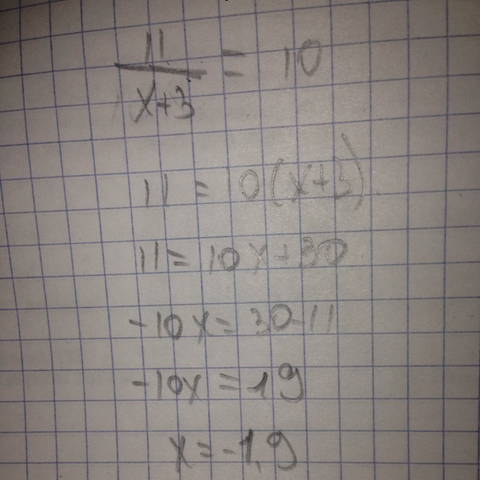 11/x+3 = 10
11 = 10(x+3)
11 = 10x+30
-10x = 30-11
-10x = 19
x = -1,9